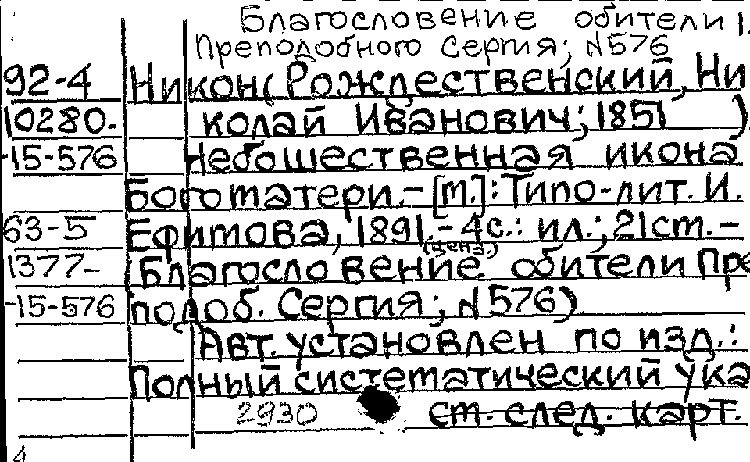 Благословение обители
Преподобного Сергия; N576
92-4 Никон (Рожде­ственский, Ни
10280- колай Иванович; 1851 )
-15-576 Небошественная икона
Богоматери. - [м.]: Типо-лит. И.
63-5 Ефимова, 1891. - 4с.: ил.; 21см. -
1377- (Благословение обители Пре
(цена.)
-15-576 подоб. Сергия; N576)
Авт. установлен по изд.:
Полный систематический ука
2930 см. след. карт.
4